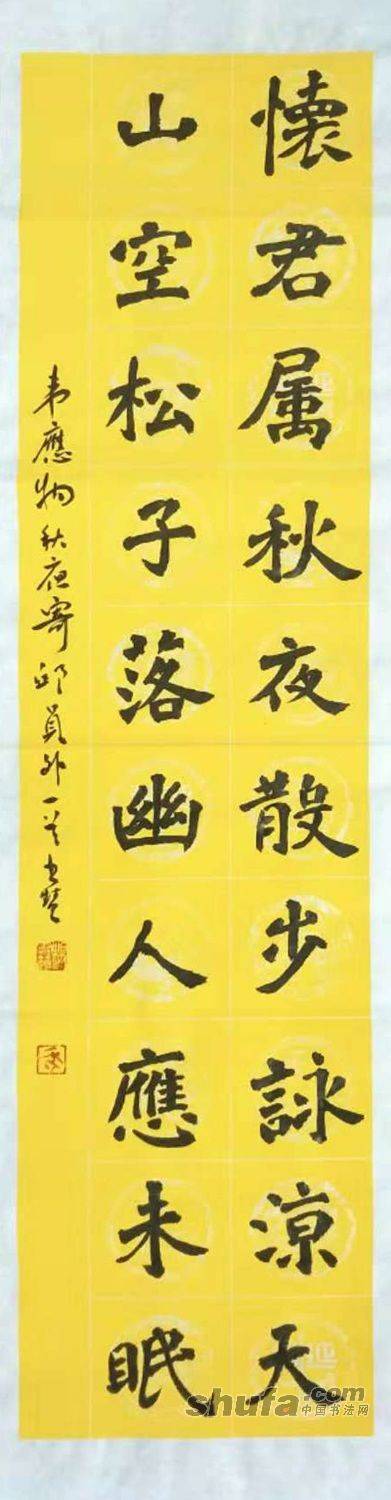 懷君属秋夜散步詠涼天
山空松子落幽人應未眠
韦應物秋夜寄邱員外一首
shufa.com
中国书法网